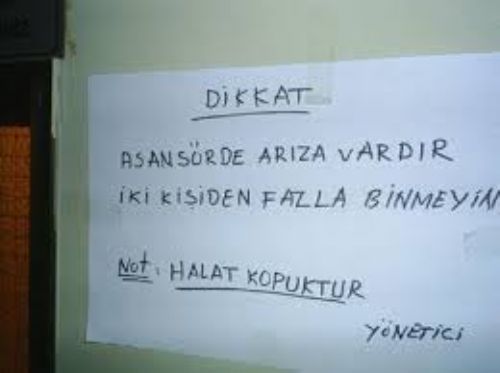 DİKKAT
ASANSÖRDE ARIZA VARDIR
İKİ KİŞİDEN FAZLA BİNMEYİN
Not: HALAT KOPUKTUR
YÖNETİCİ